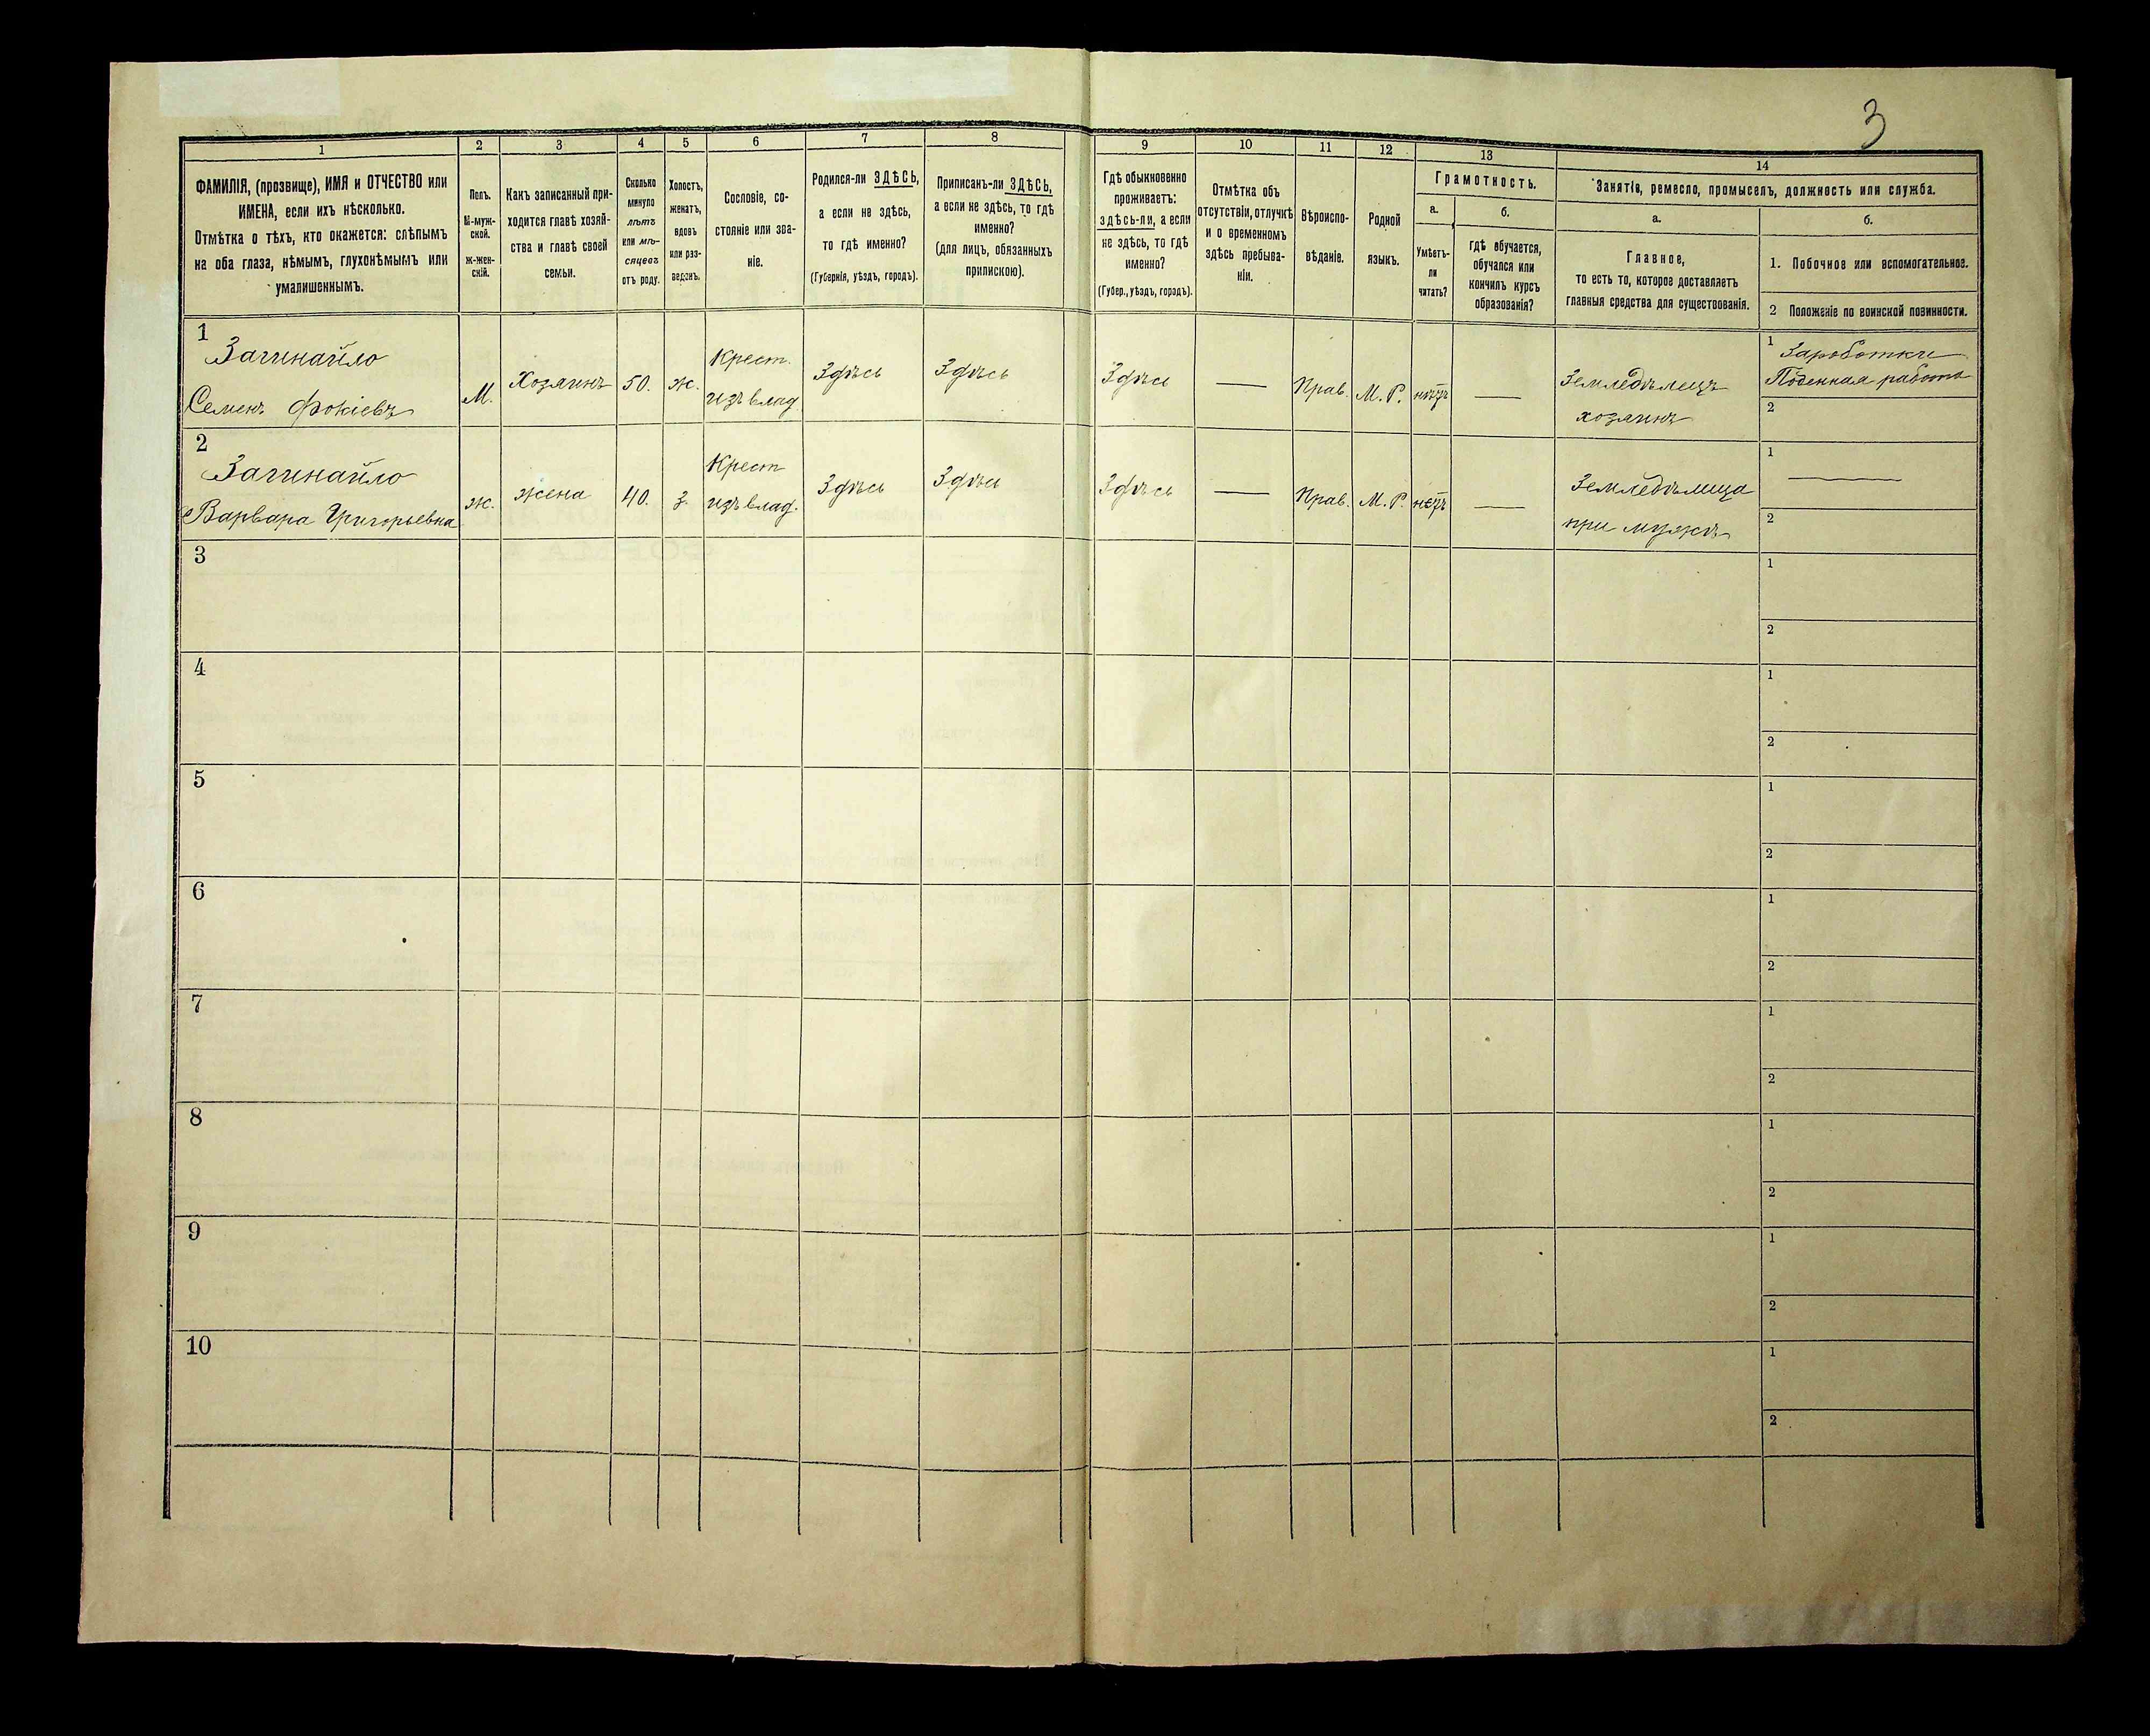 3
1 2 3 4 5 6 7 8 9 10 11 12 13 14
ФАМИЛІЯ, (прозвище), ИМЯ и ОТЧЕСТВО или
ИМЕНА, если ихъ нѣсколько.
Отмѣтка о тѣхъ, кто окажется: слѣпымъ
на оба глаза, нѣмымъ, глухонѣмымъ или
умалишеннымъ.
Полъ.
М-муж-
ской.
ж-жен-
скій.
Какъ записанный при-
ходится главѣ хозяй-
ства и главѣ своей
семьи.
Сколько
минуло
лѣтъ
или мѣ-
сяцевъ
отъ роду.
Холостъ,
женатъ,
вдовъ
или раз-
веденъ.
Сословіе, со-
стояніе или зва-
ніе.
Родился-ли ЗДѢСЬ,
а если не здѣсь,
то гдѣ именно?
(Губернія, уѣздъ, городъ).
Приписанъ-ли ЗДѢСЬ,
а если не здѣсь, то гдѣ
именно?
(для лицъ, обязанныхъ
припискою).
Гдѣ обыкновенно
проживаетъ:
здѣсь-ли, а если
не здѣсь, то гдѣ
именно?
(Губер., уѣздъ, городъ).
Отмѣтка объ
отсутствіи, отлучкѣ
и о временномъ
здѣсь пребыва-
ніи.
Вѣроиспо-
вѣданіе.
Родной
языкъ.
Грамотность.
а.
Умѣетъ-
ли
читать?
б.
гдѣ обучается,
обучался или
кончилъ курсъ
образованія?
Занятіе, ремесло, промыселъ, должность или служба.
а.
Главное,
то есть то, которое доставляетъ
главныя средства для существованія.
б.
1. Побочное или вспомогательное.
2 Положеніе по воинской повинности.
1
Загинайло
Семенъ Фокіевъ
М.
Хозяинъ
50.
ж.
Крест.
изъ влад.
Здѣсь
Здѣсь
Здѣсь
—
Прав.
М. Р.
нѣтъ
—
Земледѣлецъ
хозяинъ
1 Зароботки
Поденная работа
2
2
Загинайло
Варвара Григорьевна
ж.
жена
40.
з
Крест
изъ влад.
Здѣсь
Здѣсь
Здѣсь
—
Прав.
М. Р.
нѣтъ
—
Земледѣлица
при мужѣ
1
—
2
3
1
2
4
1
2
5
1
2
6
1
2
7
1
2
8
1
2
9
1
2
10
1
2